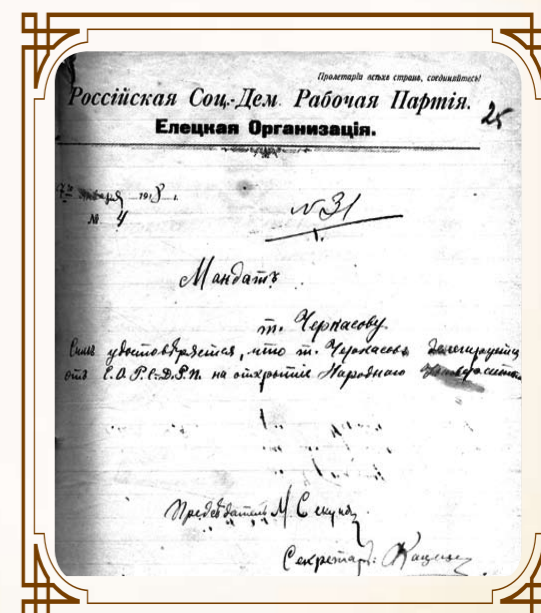 Пролетаріи всѣхъ странъ, соединяйтесь!
Россійская Соц.-Дем. Рабочая Партія.
25
Елецкая Организація.
7го января 1918 г.
№ 4
№31
Мандатъ
т. Черкасову
Симъ удостовѣряется, что т. Черкасовъ делегируется
отъ Е.О.Р.С.-Д.Р.П. на открытіе Народнаго Университета
Предсѣдатель М.
Секретарь: